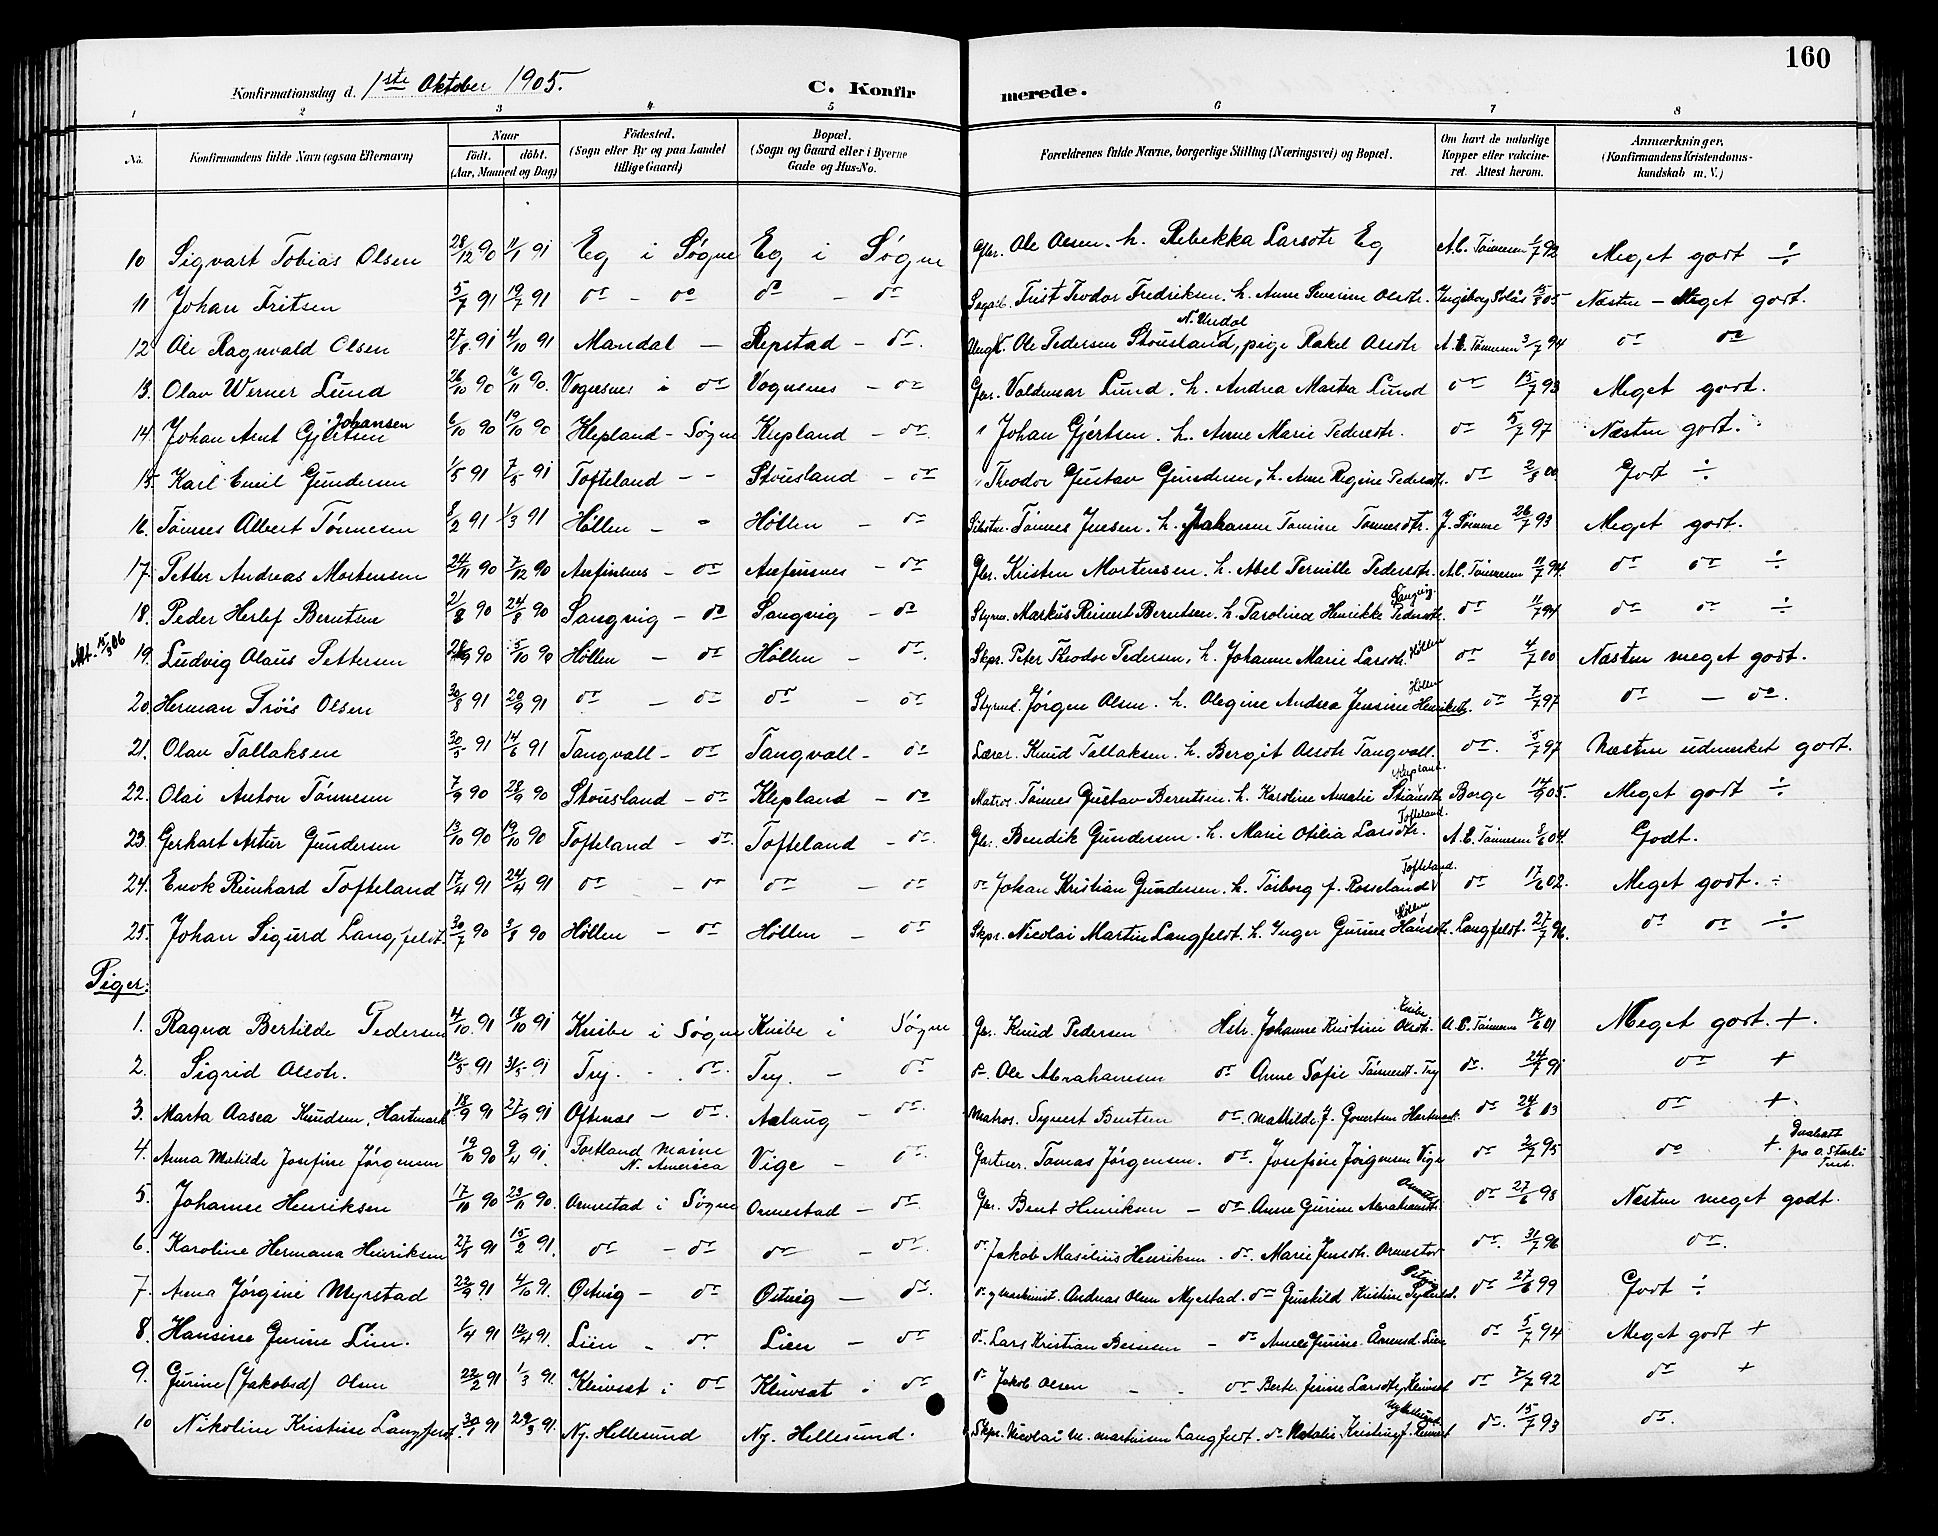 160
Konfirmationsdag d. 1ste Oktober 1905. C. Konfirmerede.
1 2 3 4 5 6 7 8
No. Konfirmandens fulde Navn (ogsaa Efternavn) Naar födt. döbt. (Aar, Maaned og Dag) Födested. (Sogn eller By og paa Landet tillige Gaard) Bopæl. (Sogn og Gaard eller i Byerne Gade og Hus-No. Forældrenes fulde Navne, borgerlige Stilling (Næringsvei) og Bopæl. Om havt de naturlige Kopper eller vaccineret. Attest herom. Anmærkninger, (Konfirmandens Kristendomskundskab m. V.)
10 Sigvart Tobias Olsen 28/12 90 11/1 91 Eg i Søgne Eg i Søgne Gbr. Ole Olsen. h. Rebekka Larsdtr Eg A.C. Tönnesen 1/7 92 Meget godt ÷
11 Johan Fritsen 5/7 91 19/7 91 do - do do - do Trist Teodor Fredriksen. h. Anne Severine Olsdtr. Ingeborg Solås 15/8 05 Næsten - Meget godt.
12 Ole Ragnvald Olsen 27/8 91 4/10 91 Mandal - Repstad - do. Ungk. Ole Pedersen Stousland, N. Undal pige Rakel Olsdtr A. C. Tönnesen 3/7 94 do do
13. Olav Werner Lund 26/10 90 16/11 90. Vognsnes i do Vognsnes - do Gbr. Valdemar Lund. h. Andrea Marta Lund do 15/7 93 Meget godt.
14. Johan Arnt Gjertsen Johansen 6/10 90 19/10 90 Klepland - Søgne Klepland - do. " Johan Gjertsen. h. Anne Marie Pedersdtr. do 5/7 97 Næsten godt. ÷
15. Karl Emil Gundersen 1/5 91 7/5 91 Tofteland - - Stousland - do " Theodor Gustav Gundersen, h. Anne Regine Pedersdtr. do 2/8 00 Godt ÷
16. Tönnes Albert Tönnesen 8/2 91 1/3 91 Höllen - " Höllen - do Tönnes Jensen. h. Johanne Tomine Tönnesdtr. J. Sömme 26/7 93 Meget godt.
17. Petter Andreas Mortensen 24/11 90 7/12 90 Aufinsnes - do Aufinsnes - do Gbr. Kristen Mortensen. h. Abel Pernille Pedersdtr. A.C. Tönnesen 11/7 94. do do ÷
18. Peder Herlef Berntsen 2/8 90 24/8 90 Sangvig - do Sangvig - do Styrm. Markus Reinert Berntsen. h. Parolina Henrikke Pedersdtr. Sangvig do 11/7 94 do do ÷
Att. 15/3 06
19. Ludvig Olaus Pettersen 28/9 90 5/10 90 Höllen - do Höllen - do. Skpr. Peter Theodor Pedersen, h. Johanne Marie Larsdtr. Höllen do 4/7 00 Næsten meget godt.
20. Herman Tröis Olsen 30/8 91 20/9 91 do - do do - do Styrmd. Jörgen Olsen. h. Olegine Andrea Jensine Henriksdtr. Höllen do 7/7 97 do - do.
21. Olav Tallaksen 30/5 91 14/6 91 Tangvall - do Tangvall - do Lærer. Knud Tallaksen. h. Bergit Olsdtr Tangvall. do. 5/7 97 Næsten udmerket godt.
22. Olai Anton Tönnesen 7/9 90 28/9 90 Stousland - do Klepland - do Matros. Tönnes Gustav Berntsen. h. Karoline Amalie Stiansdtr Klepland. Borge 14/9 05. Meget godt ÷
23. Gerhart Artur Gundersen 13/10 90 19/10 90 Tofteland - do. Tofteland - do. Gbr. Bendik Gundersen. h. Marie Otilia Larsdtr. Tofteland. A.C. Tönnesen 8/6 04. Godt.
24. Enok Reinhard Tofteland 17/4 91 24/4 91 do - do do - do do Johan Kristian Gundersen. h. Torborg f. Rosseland Tofteland. do 17/6 02. Meget godt. ÷
25. Johan Sigurd Langfeldt. 30/7 90 3/8 90 Höllen - do Höllen - do Skpr. Nicolai Martin Langfeldt. h. Inger Gurine Hansdtr. Höllen Langfeldt. 27/7 96. do do ÷
Piger:
1. Ragna Bertilde Pedersen 4/10. 91 18/10 91 Knibe i Søgne Knibe i Søgne Gbr. Knud Pedersen Hstr. Johanne Kristine Olsdtr. Knibe A.C. Tönnesen 14/6 01 Meget godt. +.
2. Sigrid Olsdtr. 12/5 91 31/5 91 Try. - do. Try. - do do. Ole Abrahamsen do Anne Sofie Tönnesdt. Try do. 24/7 91 do +
3. Marta Aasea Knudsen, Hartmark 18/9 91 27/9 91 Oftenes - do. Aalaug - do. Matros. Syvert Bentsen do. Mathilde J. Govertsen Hartmark. do 24/6 03 do +.
4. Anna Matilde Josefine Jörgensen 19/10 90 9/4 91. Portland Maine N. America Vige - do. Gartner. Tomas Jörgensen. do. Josefine Jörgensen Vige do 2/7 95 do +.
5. Johanne Henriksen 17/10 90 23/11 90. Ormestad i Søgne Ormestad - do. Gbr. Bent Henriksen - do. Anne Gurine Abrahamsdtr. Ormestad do 27/6 98 Næsten meget godt.
6. Karoline Hermana Henriksen 27/1 91 15/2 91. do - do do - do. do. Jakob Masilius Henriksen. do. Marie Jensdtr. Ormestad do. 31/7 96 do.
7. Anna Jörgine Myrstad 22/9 91 4/10 91. Østvig - do Østvig - do. do. og maskinist. Andreas Olsen Myrstad. do Gunhild Kristine Syvertsd. Østvig do 27/6 99 Godt ÷
8. Hansine Gurine Lien. 1/4 91 12/4 91. Lien - do. Lien - do do. Lars Kristian Bensen - do Anne Gurine Aanensd. Lien do 5/7 94 Meget godt +
9. Gurine (Jakobsd) Olsen 22/2 91 1/3 91. Kleivset i do Kleivset i do do Jakob Olsen - - do Berte Jesine Larsdtr, Kleivset do 7/7 92 do +
10 Nikoline Kristine Langfeldt. 30/1 91 29/3 91. Ny. Hellesund Ny. Hellesund. Skpr. Nicolai M. Martinsen Langfeldt. do Natalie Kristine f. Kleivset Ny Hellesund do. 15/7 93 do.